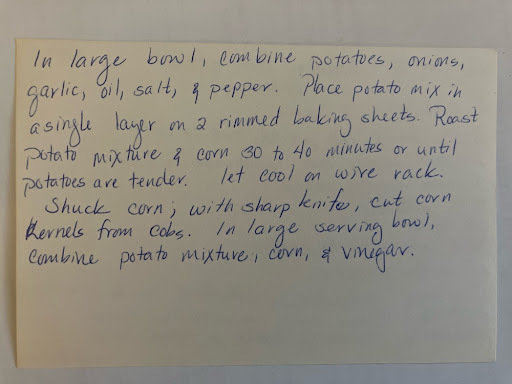 In large bowl, combine potatoes, onions,
garlic, oil, salt, & pepper. Place potato mix in
a single layer on 2 rimmed baking sheets. Roast
potato mixture & corn 30 to 40 minutes or until
potatoes are tender. let cool on wire rack.
Shuck corn; with sharp knife, cut corn
kernels from cobs. In large serving bowl,
combine potato mixture, corn, & vinegar.